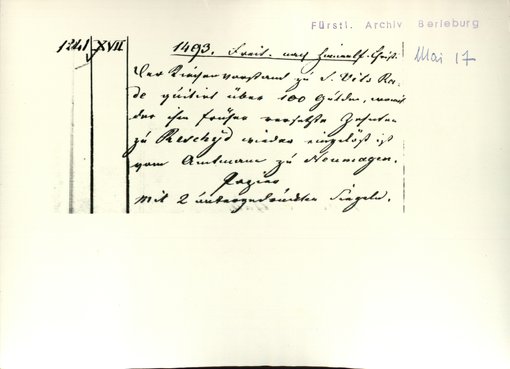 Fürstl. Archiv Berleburg
1241 XVII 1493. Freit. nach Himmelf. Christ. Mai 17
Der Kirchenvorstand zu S. Vits Ro-
de quitirt über 100 Gulden, womit
der ihm früher versetzte Zehnten
zu Reschyd wieder eingelöst ist
vom Amtmann zu Neumagen.
Papier
Mit 2 untergedruckten Siegeln.